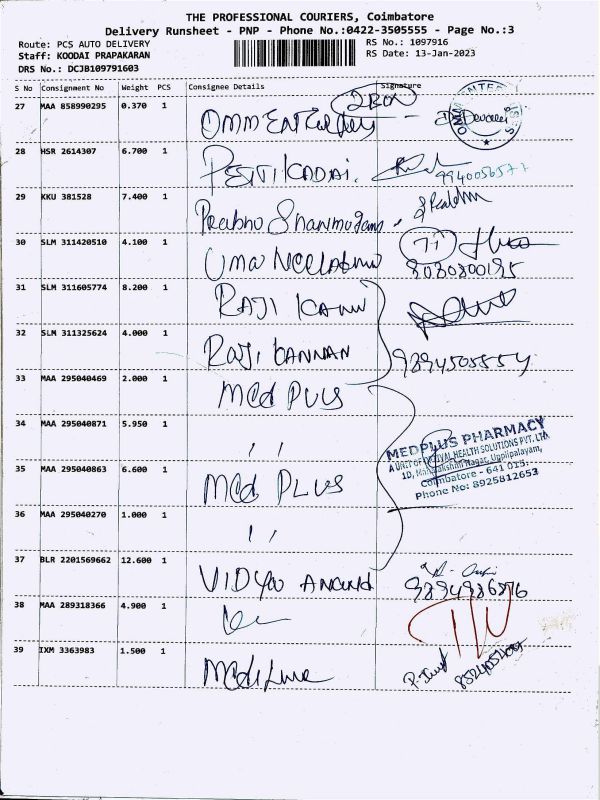 THE PROFESSIONAL COURIERS, Coimbatore
Delivery Runsheet - PNP - Phone No.:0422-3505555 - Page No.:3
Route: PCS AUTO DELIVERY
RS No.: 1097916
Staff: KOODAI PRAPAKARAN
RS Date: 13-Jan-2023
DRS No.: DCJB109791603
S No Consignment No Weight PCS Consignee Details Signature
27 MAA 858990295 0.370 1
28 HSR 2614307 6.700 1
9940056577
29 KKU 381528 7.400 1 Prabho Shanmugam
30 SLM 311420510 4.100 1 Uma Neelaknu
8030800195
31 SLM 311605774 8.200 1 RAJI KANN
32 SLM 311325624 4.000 1 RAJI KANNAN 9894505554
33 MAA 295040469 2.000 1 Med PLUS
34 MAA 295040871 5.950 1 ,,
MEDPLUS PHARMACY
A UNIT OF OPTIVAL HEALTH SOLUTIONS PVT. LTD
Uppilipalayam,
Coimbatore - 641 015.
Phone No: 8925812653
35 MAA 295040863 6.600 1 Med PLUS
36 MAA 295040270 1.000 1 ,,
37 BLR 2201569662 12.600 1 VIDYA ANAND
9894986876
38 MAA 289318366 4.900 1
39 IXM 3363983 1.500 1